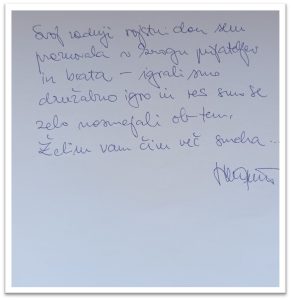 Svoj zadnji rojstni dan sem
praznovala v krogu prijateljev
in brata – igrali smo
družabno igro in res smo se
zelo nasmejali ob tem.
Želim vam čim več smeha...